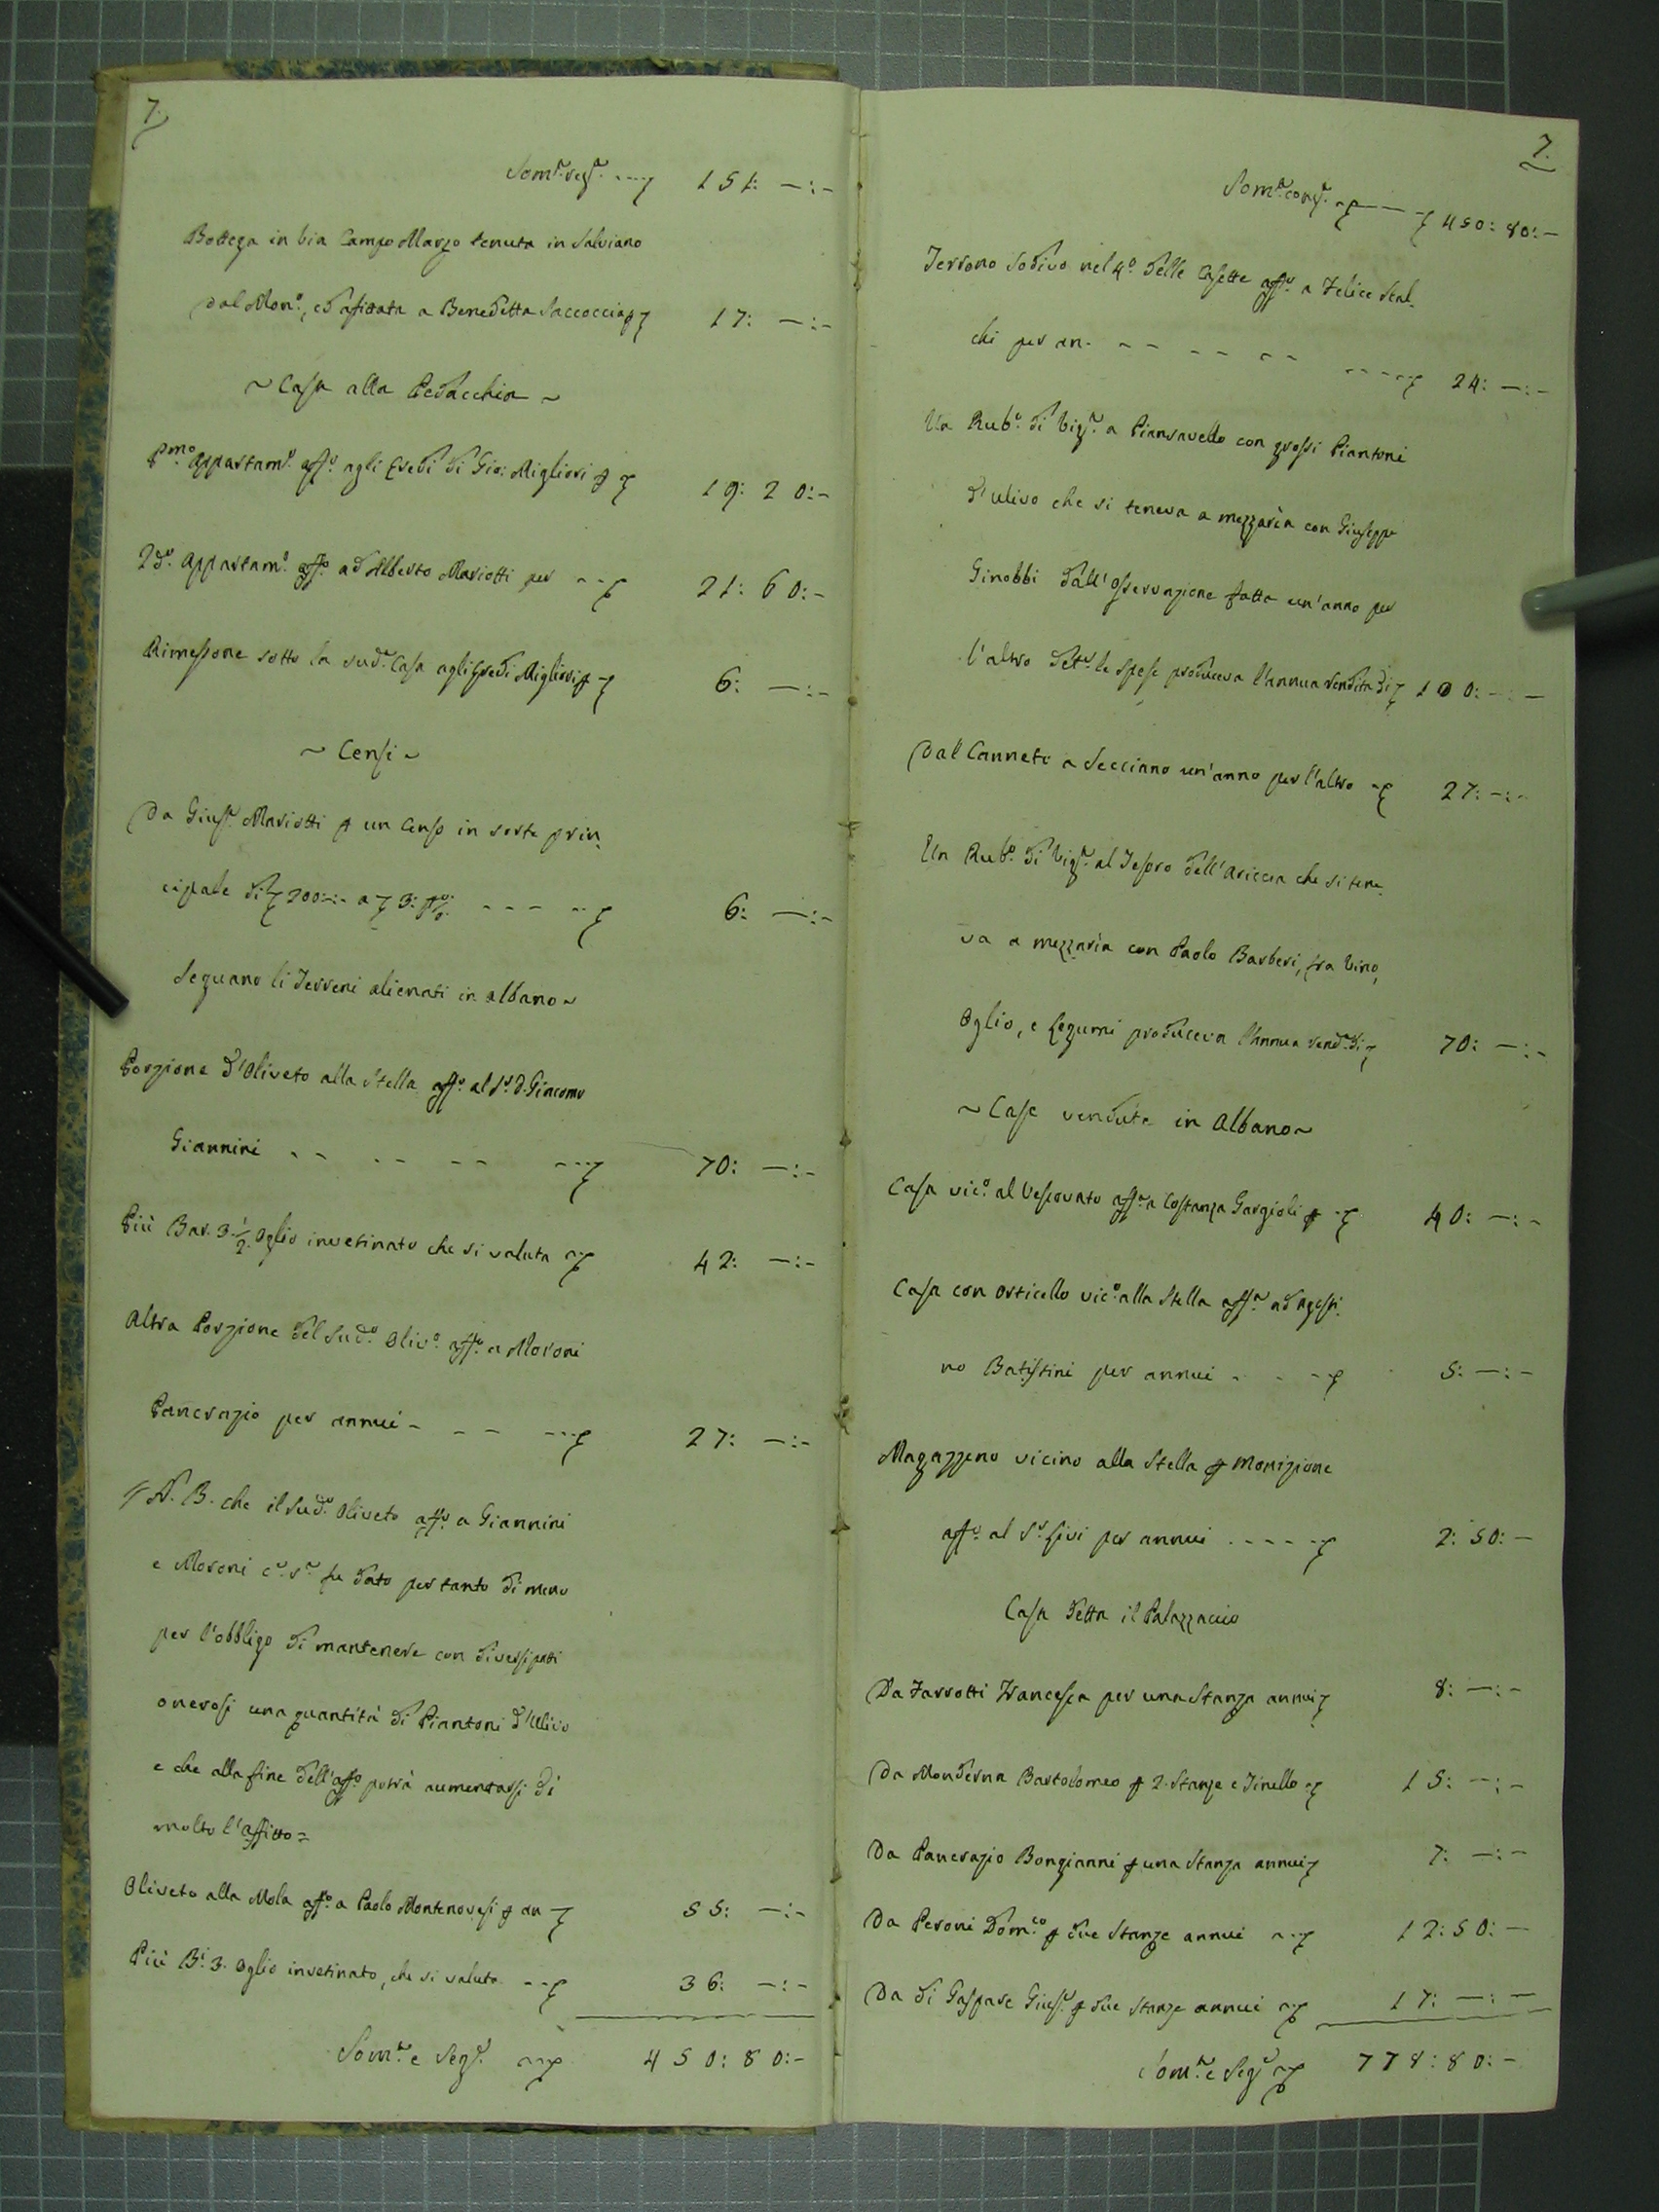 7.
Som.ª seg.ª ---- 151: —:-
Bottega in Via Campo Marzo tenuta in Salviano
dal Mon.º, ed afittata a Benedetta Saccoccia p 17: —:-
~ Casa alla Pedacchia ~
P.mo Appartam.º aff.º agli Eredi di Gio: Migliori p 19: 20:-
2do. Appartam.º aff.º ad Alberto Mariotti per -- 21: 60:-
Rimessone sotto la sud.ª Casa agli Eredi Migliori p 6: —:-
~ Censi ~
Da Gius.e Mariotti p un Censo in sorte prin,
cipale di 200:-:- a 3: p% --- -- 6: —:-
Seguano li Terreni alienati in Albano ~
Porzione d'Oliveto alla Stella aff.º al S.r D. Giacomo
Giannini -- -- -- --- 70: —:-
Più Bar. 3 1/2 Oglio invetinato che si valuta -- 42: —:-
Altra Porzione del Sud.º Oliv.º aff.º a Moroni
Pancrazio per annui - -- --- 27: —:-
N. B. che il Sud.º Oliveto aff.º a Giannini
e Moroni c.e s.a fu dato per tanto di meno
per l'obbligo di mantenere con diversi patti
onerosi una quantità di Piantoni d'Ulivo
e che alla fine dell'aff.º potrà aumentarsi di
molto l'affitto =
Oliveto alla Mola aff.º a Paolo Montenovesi p an 55: —:-
Più B.i 3. Oglio invetinato, che si valuta --- 36: —:-
Som.ª e Seg.e -- 450: 80:-
7.
Som.ª cons.ª -- 450: 80:-
Terreno Sodivo nel 4.º delle Casette aff.º a Felice Scal-
chi per an. -- -- -- ---- 24: —:-
Un Rub.º di Vig.ª a Piansavello con grossi Piantoni
d'ulivo che si teneva a mezzaria con Giuseppe
Ginobbi dall'Osservazione fatta un'anno per
l'altro det.e le spese produceva l'annua rendita di 100: —:-
Dal Canneto a Secciano un'anno per l'altro -- 27: —:-
Un Rub.º di Vig.ª al Tesoro dell'Ariccia che si tene-
va a mezzaria con Paolo Barberi, fra Vino,
Oglio, e Legumi produceva l'annua rend.ª di 70: —:-
~ Case vendute in Albano ~
Casa vic.º al Vescovato aff.ª a Costanza Gargioli p -- 40: —:-
Casa con Orticello vic.º alla Stella aff.ª ad Agosti-
no Batistini per annui - - -- 5: —:-
Magazzeno vicino alla Stella p Monizione
aff.º al S.r Livi per annui ----- 2: 50:-
Casa detta il Palazzaccio
Da Farrotti Francesca per una Stanza annui 8: —:-
Da Monderna Bartolomeo p 2. Stanze e Tinello -- 15: —:-
Da Pancrazio Bongianni p una Stanza annui 7: —:-
Da Peroni Dom.co p due Stanze annui -- 12: 50: —
Da di Gaspare Gius.e p due Stanze annui -- 17: —:-
Som.ª e Seg.e -- 778: 80:-